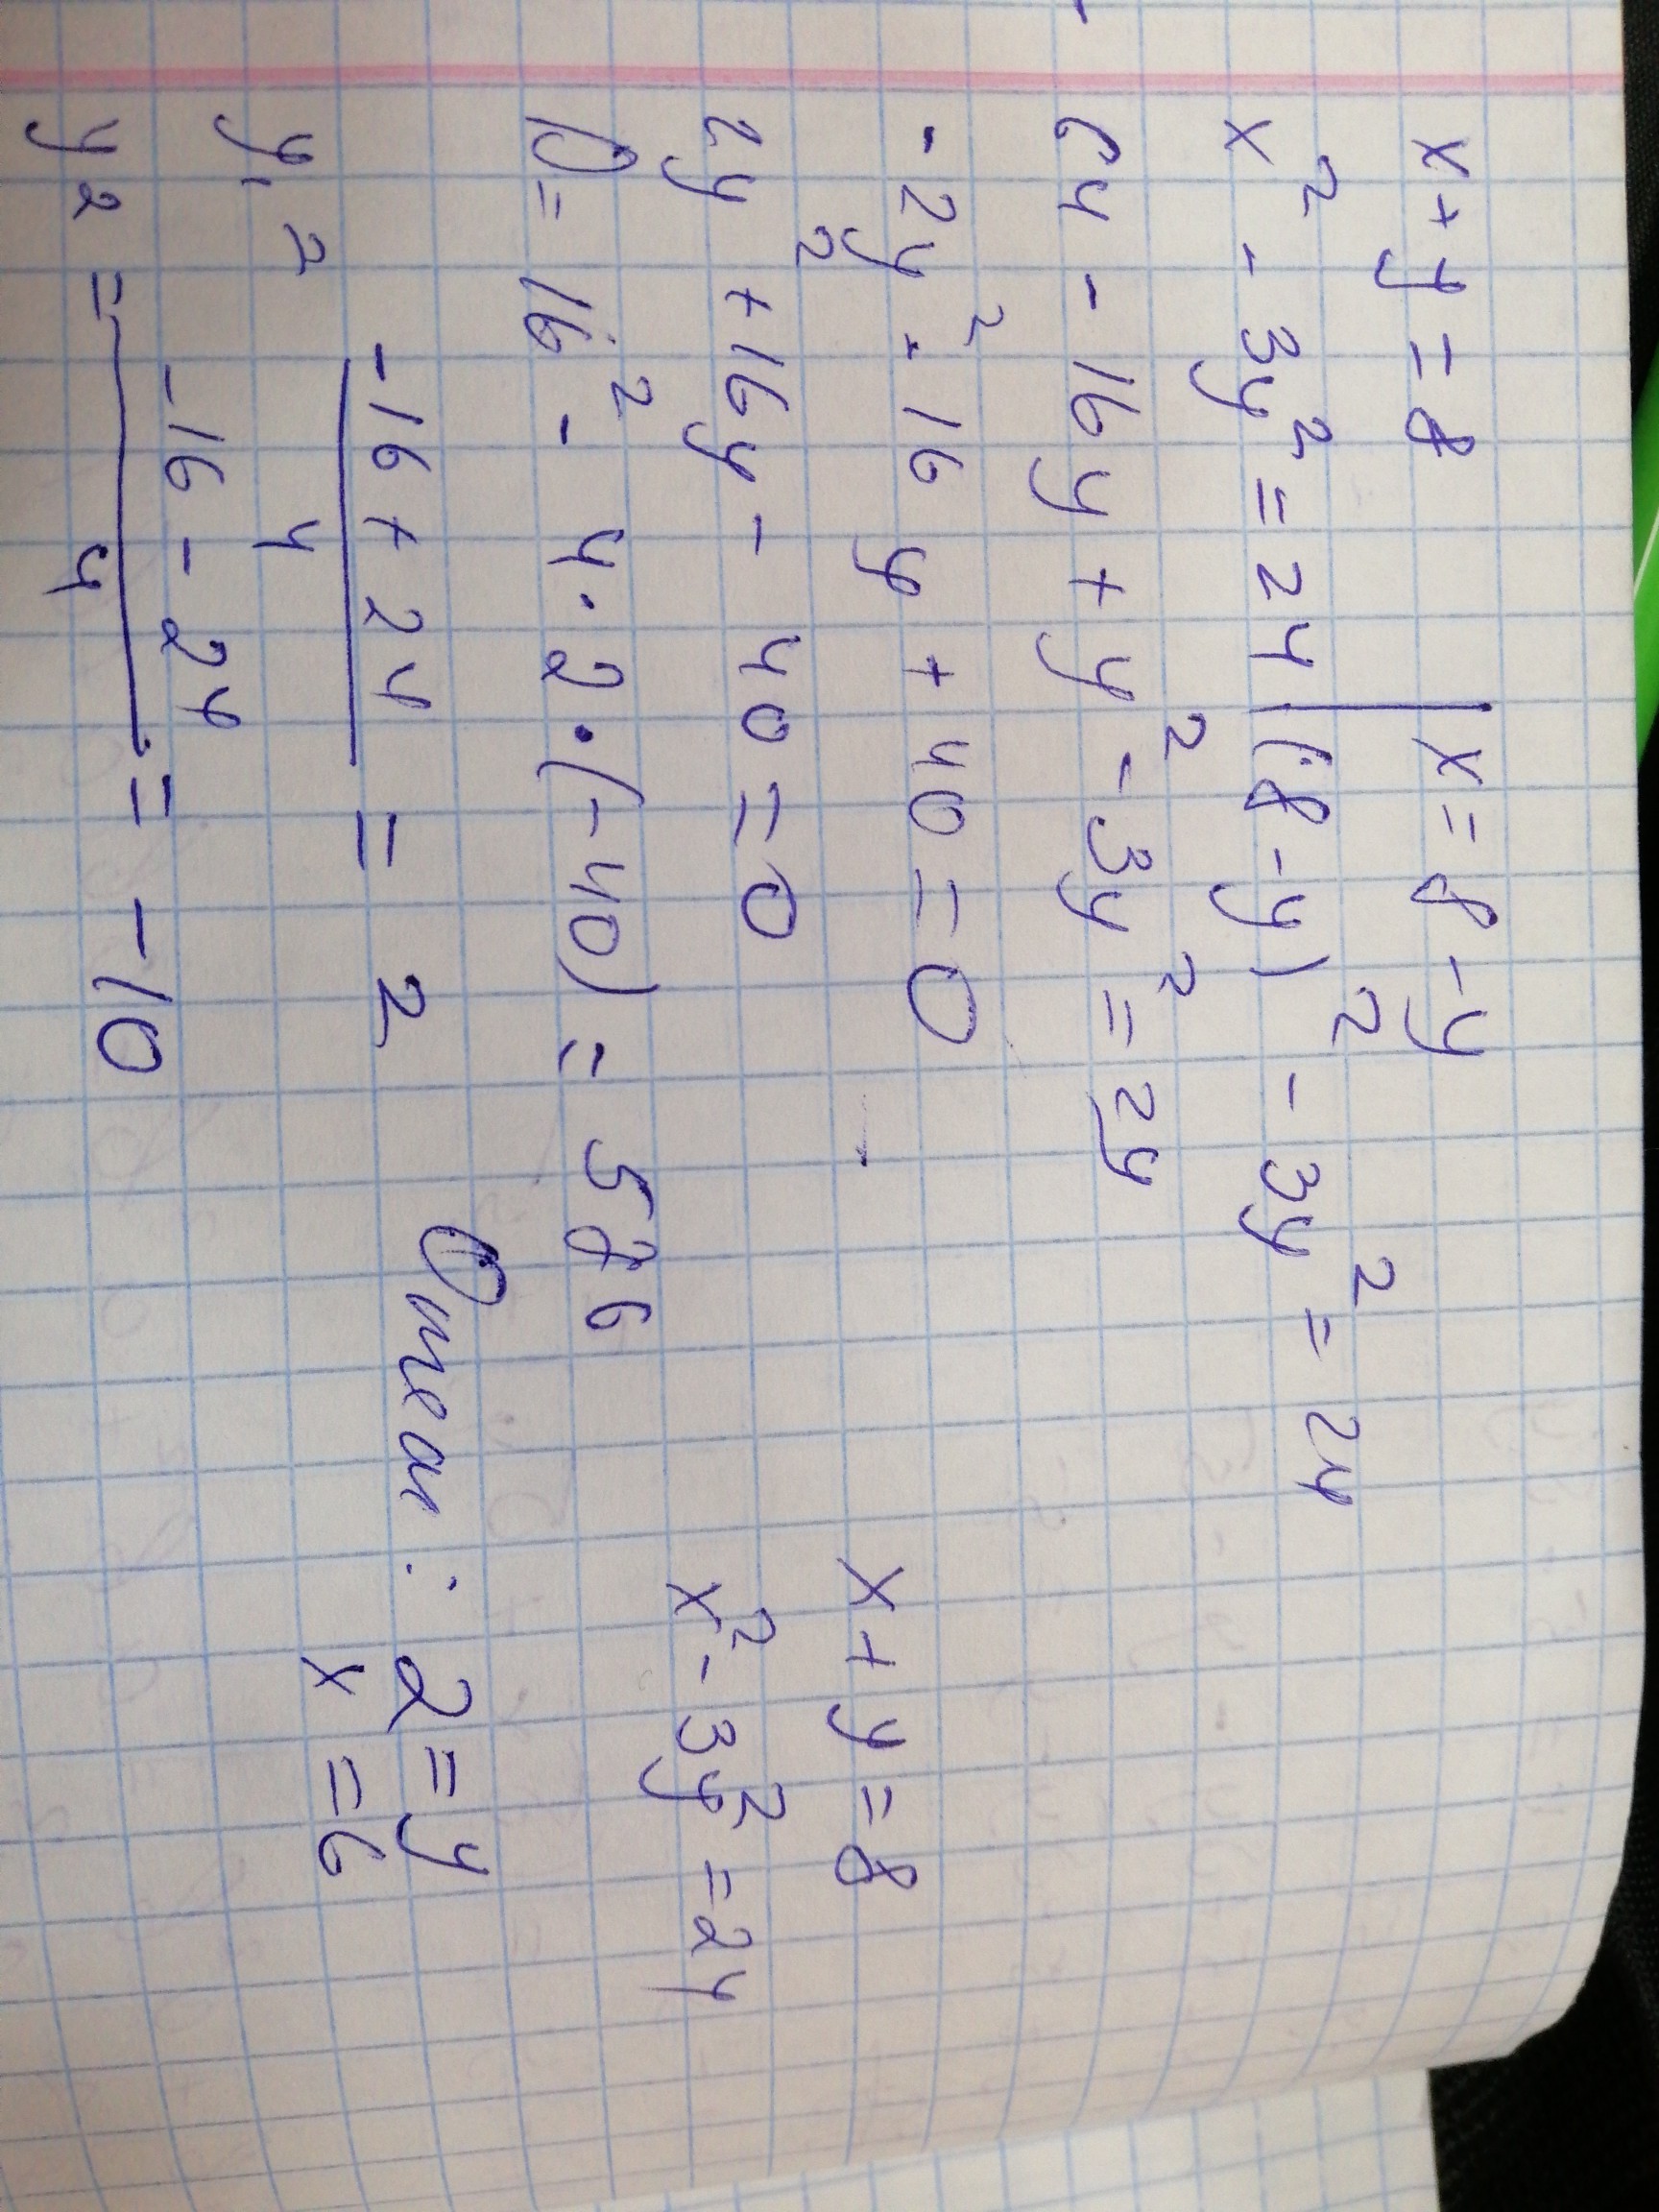 x + y = 8 | x = 8 - y
x² - 3y² = 24 | (8 - y)² - 3y² = 24
64 - 16y + y² - 3y² = 24
- 2y² - 16y + 40 = 0
2y² + 16y - 40 = 0
D = 16² - 4 · 2 · (-40) = 576
y₁ = (-16 + 24)/4 = 2
y₂ = (-16 - 24)/4 = -10
x + y = 8
x² - 3y² = 24
Ответ: 2 = y
x = 6